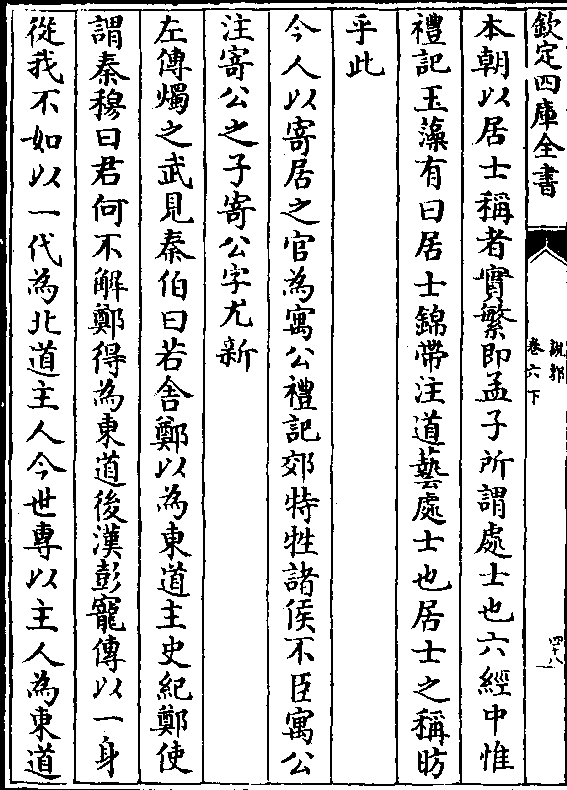 欽定四庫全書
說郛
卷六下
四十八
本朝以居士稱者實繁即孟子所謂處士也六經中惟
禮記玉藻有曰居士錦帶注道藝處士也居士之稱昉
乎此
今人以寄居之官為寓公禮記郊特牲諸侯不臣寓公
注寄公之子寄公字尤新
左傳燭之武見秦伯曰若舍鄭以為東道主史紀鄭使
謂秦穆曰君何不解鄭得為東道後漢彭寵傳以一身
從我不如以一代為北道主人今世專以主人為東道